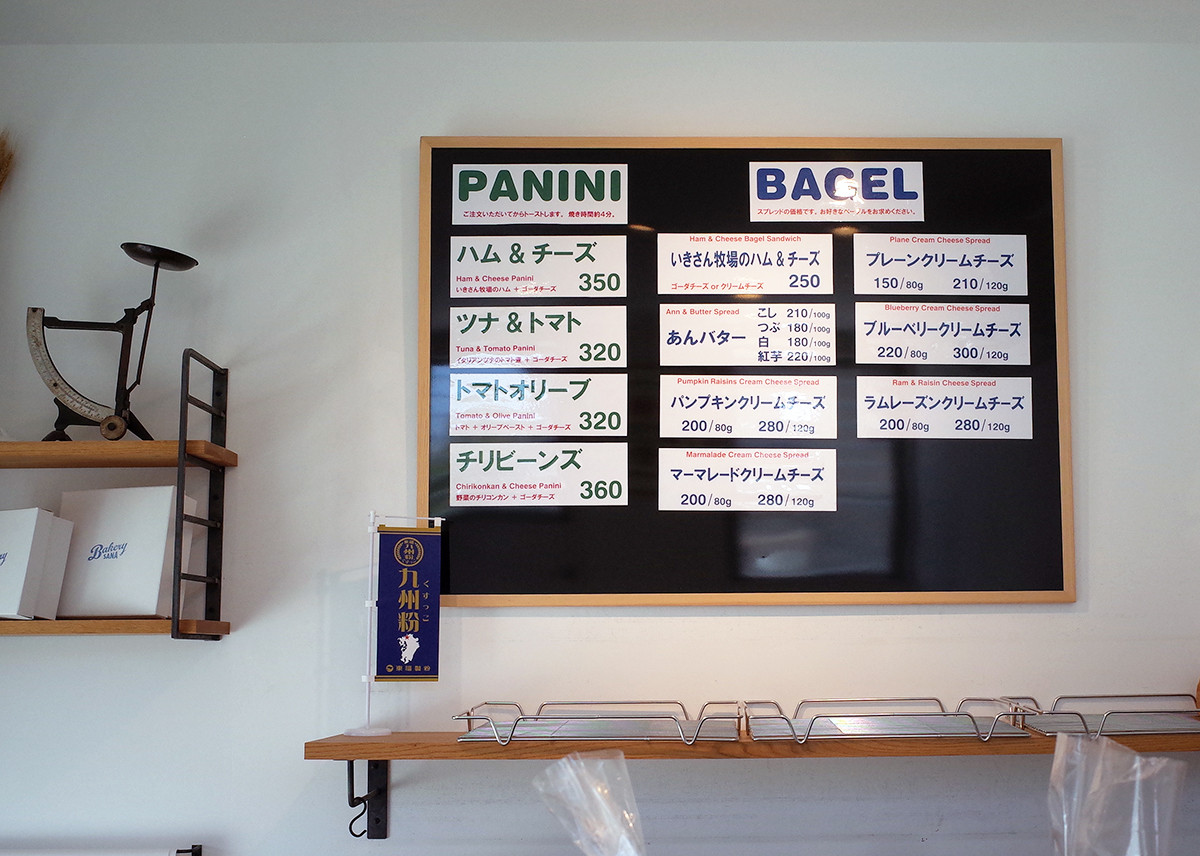 PANINI
ご注文いただいてからトーストします。 焼き時間約4分。
ハム & チーズ
Ham & Cheese Panini
いきさん牧場のハム + ゴーダチーズ
350
ツナ & トマト
Tuna & Tomato Panini
イタリアンツナのトマト味 + ゴーダチーズ
320
トマトオリーブ
Tomato & Olive Panini
トマト + オリーブペースト + ゴーダチーズ
320
チリビーンズ
Chirikonkan & Cheese Panini
野菜のチリコンカン + ゴーダチーズ
360
BAGEL
スプレッドの価格です。お好きなベーグルをお求めください。
Ham & Cheese Bagel Sandwich
いきさん牧場のハム & チーズ
ゴーダチーズ or クリームチーズ 250
Ann & Butter Spread
あんバター
こし 210/100g
つぶ 180/100g
白 180/100g
紅芋 220/100g
Pumpkin Raisins Cream Cheese Spread
パンプキンクリームチーズ
200/80g 280/120g
Marmalade Cream Cheese Spread
マーマレードクリームチーズ
200/80g 280/120g
Plane Cream Cheese Spread
プレーンクリームチーズ
150/80g 210/120g
Blueberry Cream Cheese Spread
ブルーベリークリームチーズ
220/80g 300/120g
Ram & Raisin Cheese Spread
ラムレーズンクリームチーズ
200/80g 280/120g
Bakery
SANA
九州粉
くすっこ
東福製粉